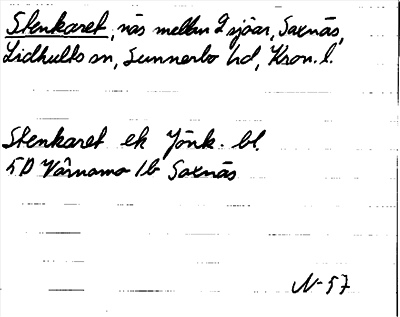 Stenkaret, näs mellan 2 sjöar, Saxnäs,
Lidhults sn, Sunnerbo hd, Kron. l.
Stenkaret ek Jönk. bl.
5D Värnamo 1b Saxnäs
N-57